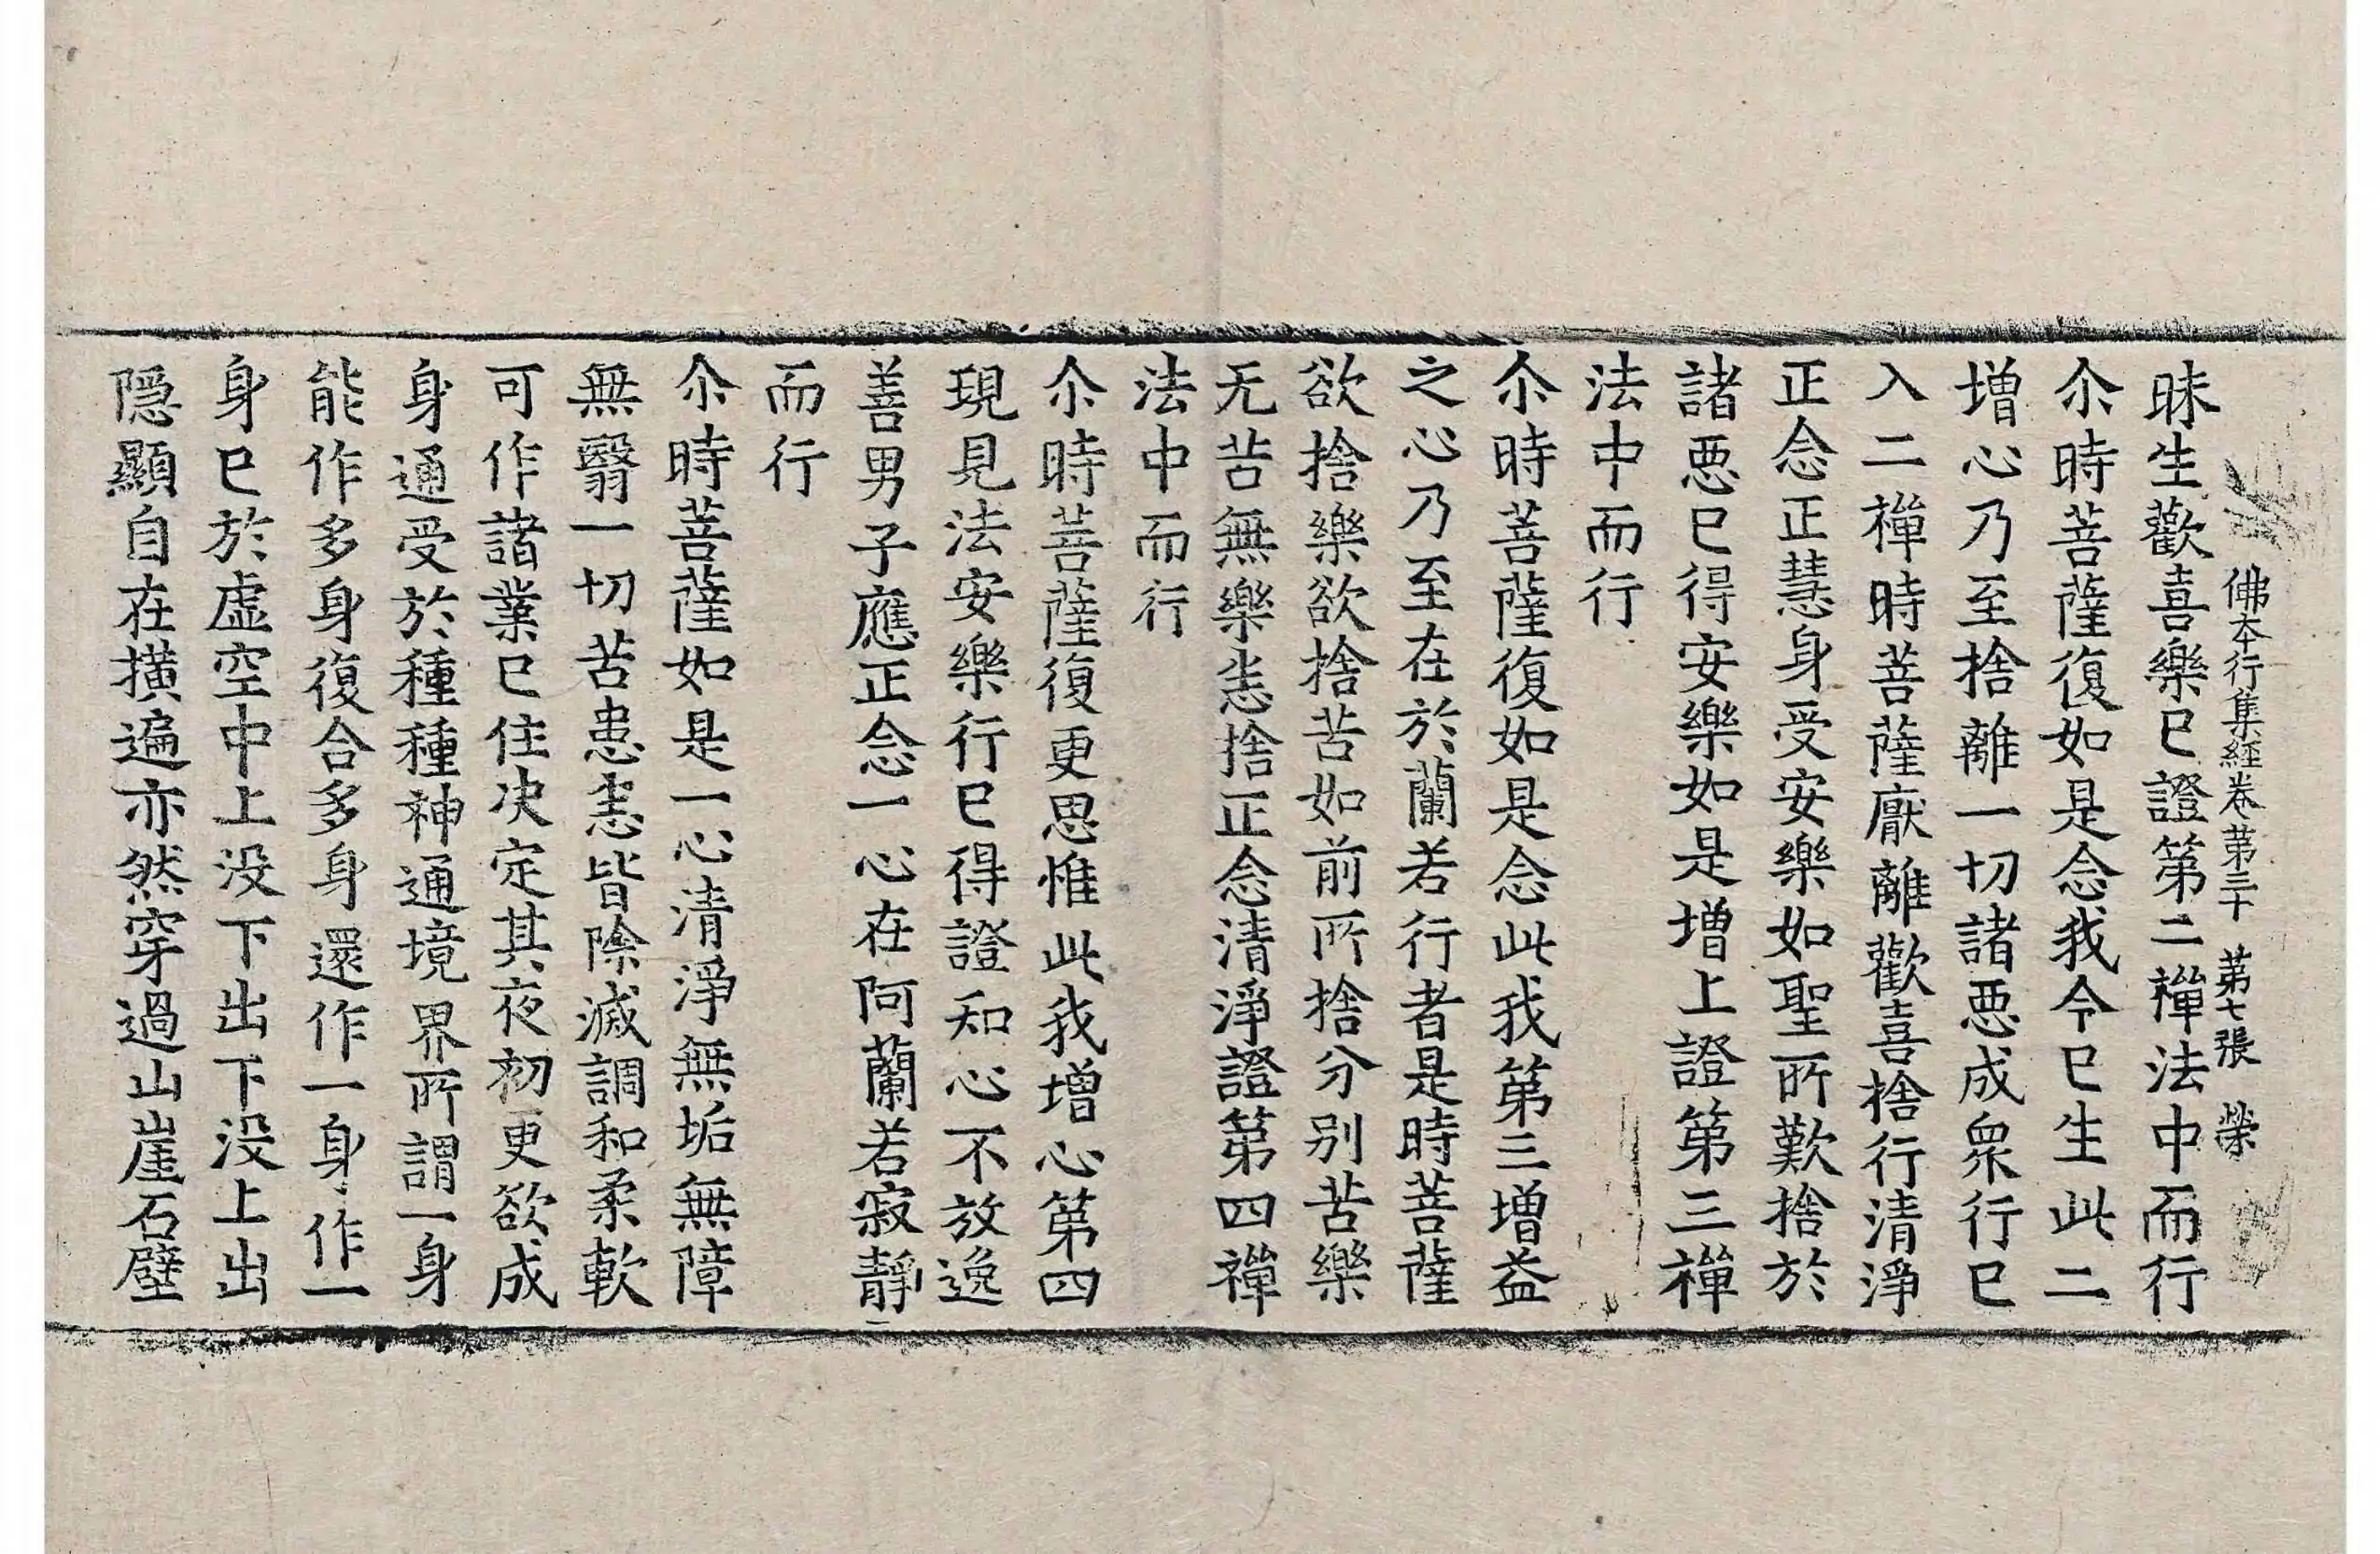 佛本行集經卷第三十　第七張　榮
昧生歡喜樂已證第二禪法中而行
尒時菩薩復如是念我今已生此二
增心乃至捨離一切諸惡成眾行已
入二禪時菩薩厭離歡喜捨行清淨
正念正慧身受安樂如聖所歎捨於
諸惡已得安樂如是增上證第三禪
法中而行
尒時菩薩復如是念此我第三增益
之心乃至在於蘭若行者是時菩薩
欲捨樂欲捨苦如前所捨分別苦樂
无苦無樂悉捨正念清淨證第四禪
法中而行
尒時菩薩復更思惟此我增心第四
現見法安樂行已得證知心不放逸
善男子應正念一心在阿蘭若寂靜
而行
尒時菩薩如是一心清淨無垢無障
無翳一切苦患悉皆除滅調和柔軟
可作諸業已住决定其夜初更欲成
身通受於種種神通境界所謂一身
能作多身復合多身還作一身作一
身已於虛空中上没下出下没上出
隱顯自在撗遍亦然穿過山崖石壁